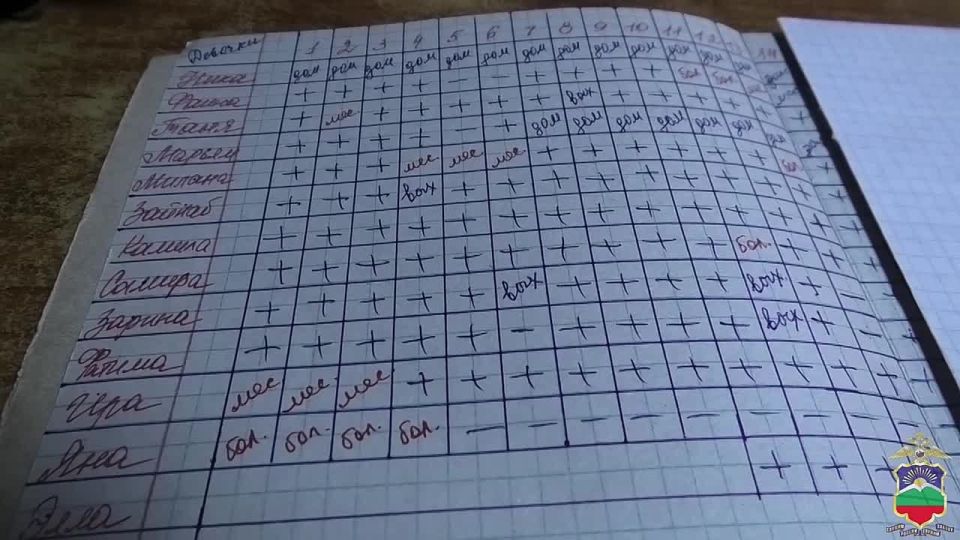 Девочки 1 2 3 4 5 6 7 8 9 10 11 12
Ника дом дом дом дом дом дом дом дом дом дом дом дом
+ + + + − − + + + + бол бол
Таня + мес + + + + + вых + + + +
Марьям + + + + − + дом дом дом дом дом дом
Милана + + + мес мес мес + + + + + + бол
Зайнаб + + + вых + + + + + + + +
Камила + + + + + + + + + + + +
Самира + + + + + + + + + + бол. +
Зарина + + + + + вых + + + + вых. + −
Фатима + + + + + − + + + + вых + −
Ира мес мес мес + + + + + + + + + +
Яна бол. бол. бол. бол. − − − − − − − −
Элла + + +